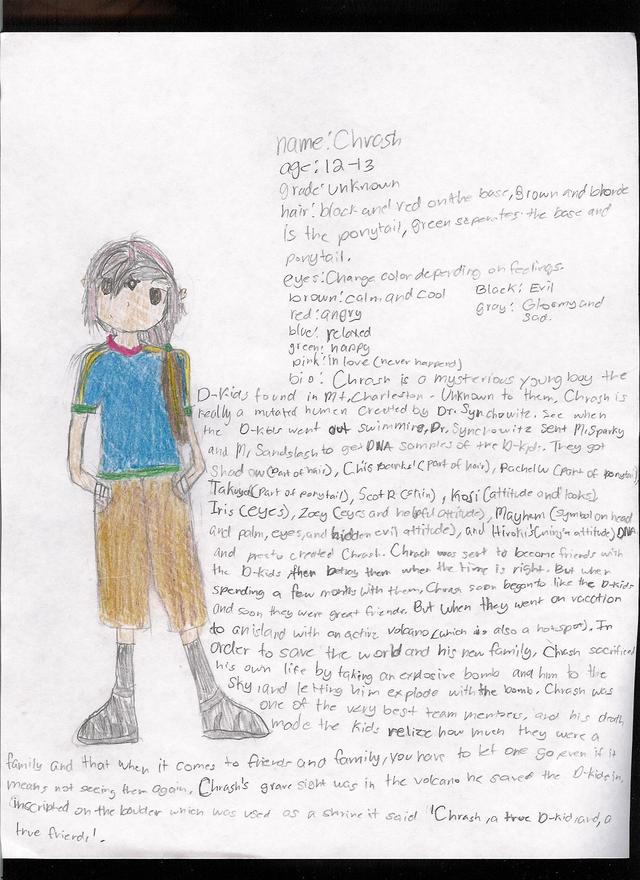 name: Chrash
age: 12-13
grade: unknown
hair: black and red on the base, Brown and blonde
is the ponytail, green seperates the base and
ponytail.
eyes: Change color depending on feelings.
brown: calm and cool Black: Evil
red: angry gray: Gloomy and
blue: relaxed sad.
green: happy
pink: in love (never happend)
bio: Chrash is a mysterious young boy the
D-Kids found in Mt. Charleston. Unknown to them, Chrash is
really a mutated human created by Dr. Synchowitz. See when
the D-kids went out swimming, Dr. Synchowitz sent M. Sparky
and M. Sandslash to get DNA samples of the D-kids. They got
Shadow (part of hair), (part of hair), (part of ponytail),
Takuya (part of ponytail), Scott R (skin), Koji (attitude and looks),
Iris (eyes), Zoey (eyes and helpful attitude), Mayhem (symbol on head
and palm, eyes, and hidden evil attitude), and Hiroki's attitude) DNA
and presto created Chrash. Chrash was sent to become friends with
the D-kids then betray them when the time is right. But when
spending a few months with them, Chrash soon began to like the D-kids
and soon they were great friends. But when they went on vacation
to an island with an active volcano (which is also a hotspot). In
order to save the world and his new family, Chrash sacrificed
his own life by taking an explosive bomb and him to the
sky, and letting him explode with the bomb. Chrash was
one of the very best team members, and his death
made the kids relize how much they were a
family and that when it comes to friends and family, you have to let one go even if it
means not seeing them again. Chrash's grave sight was in the volcano he saved the D-kids in.
inscriphed on the boulder which was used as a shrine it said 'Chrash, a true D-kid, and, a
true friends'.